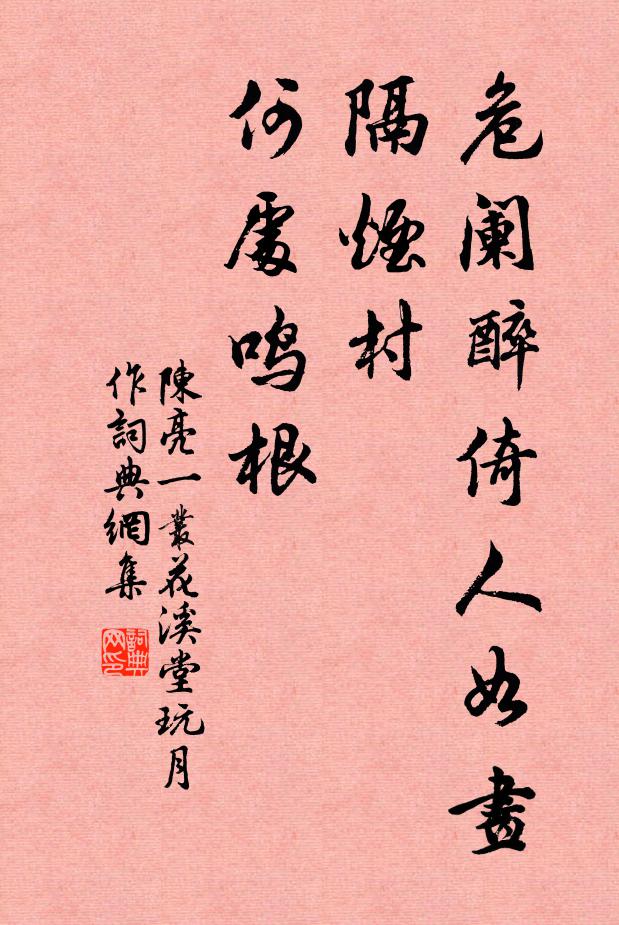 危阑醉倚人如畫
隔煙村
何處鳴根
陳亮一叢花溪堂玩月
作詞典網集
詞典網印